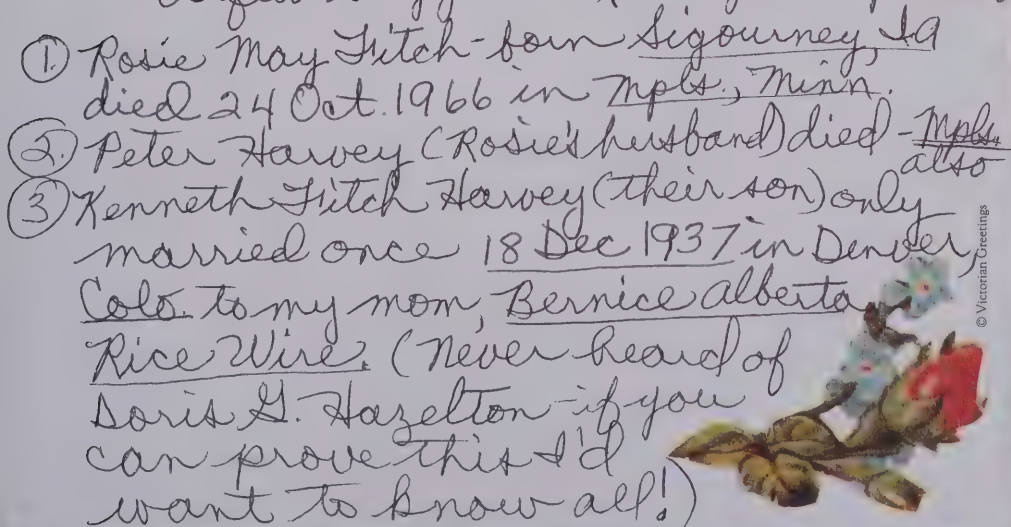 ① Rosie May Fitch - born Sigourney, Ia
died 24 Oct. 1966 in Mpls., Minn.
② Peter Harvey (Rosie's husband) died - Mpls.
also
③ Kenneth Fitch Harvey (their son) only
married once 18 Dec 1937 in Denver,
Colo. to my mom, Bernice Alberta
Rice Wire. (Never heard of
Doris G. Hazelton - if you
can prove this I'd
want to know all!)
© Victorian Greetings